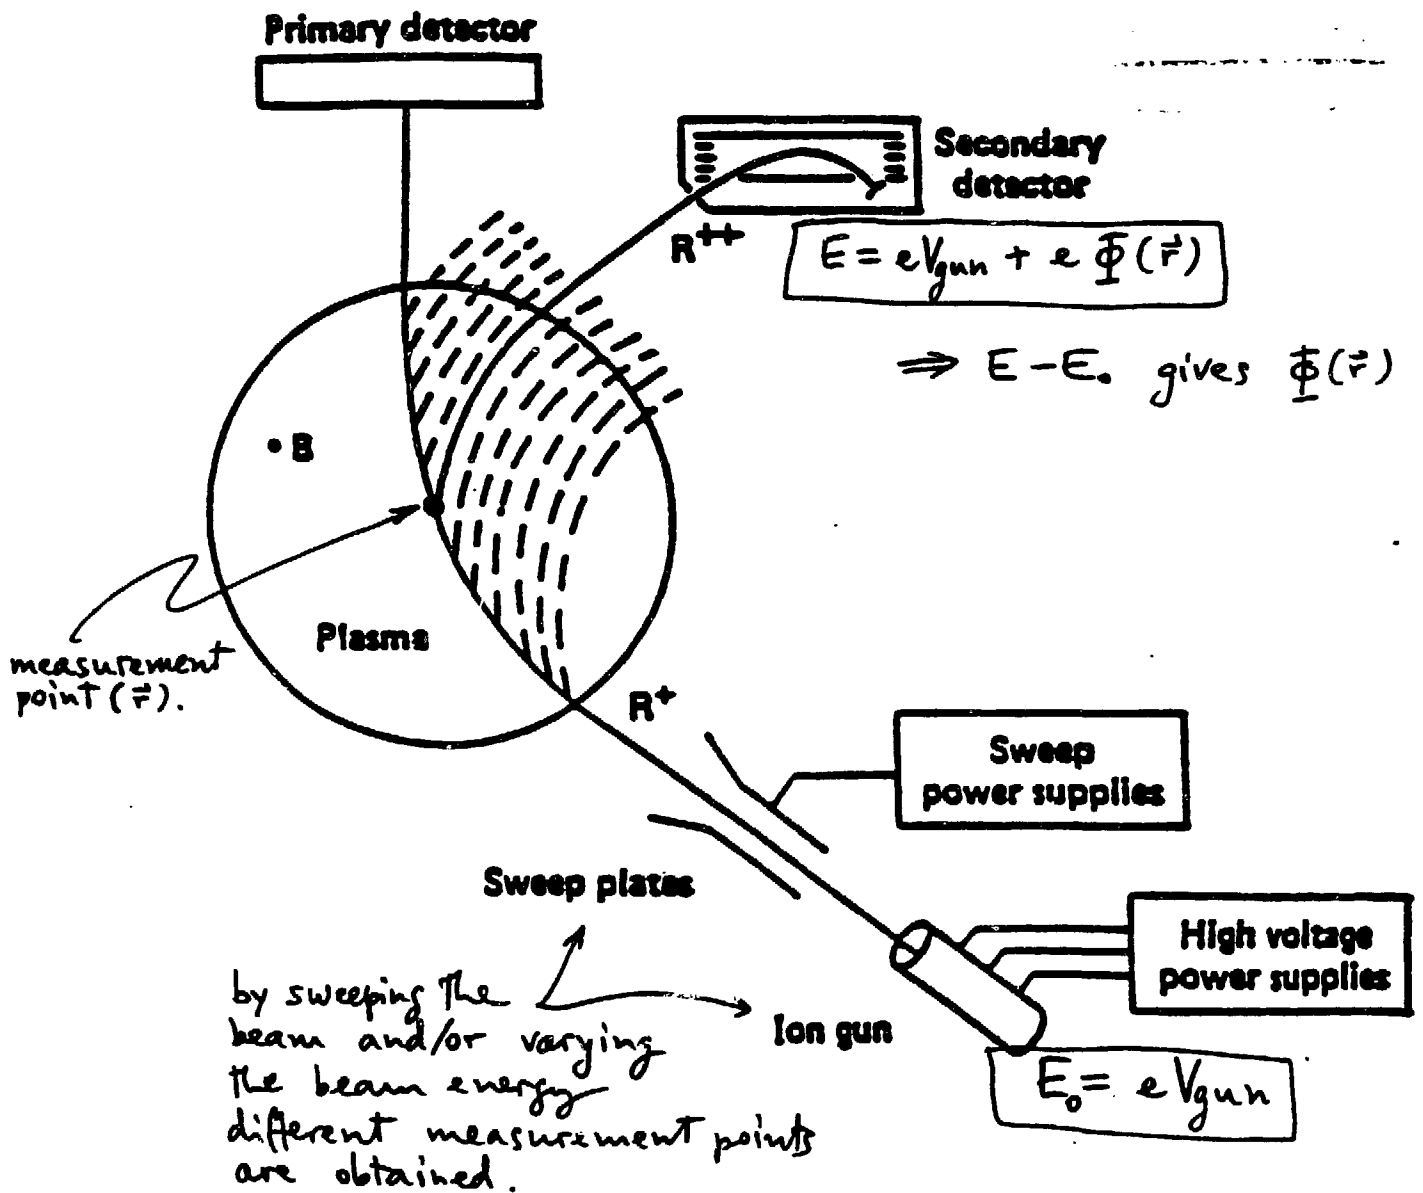 Primary detector
Secondary
detector
R⁺⁺
E = eV_gun + e Φ(r⃗)
⇒ E - E₀ gives Φ(r⃗)
• B
Plasma
measurement
point (r⃗).
R⁺
Sweep
power supplies
Sweep plates
High voltage
power supplies
by sweeping the
beam and/or varying
the beam energy
different measurement points
are obtained.
Ion gun
E₀ = eV_gun